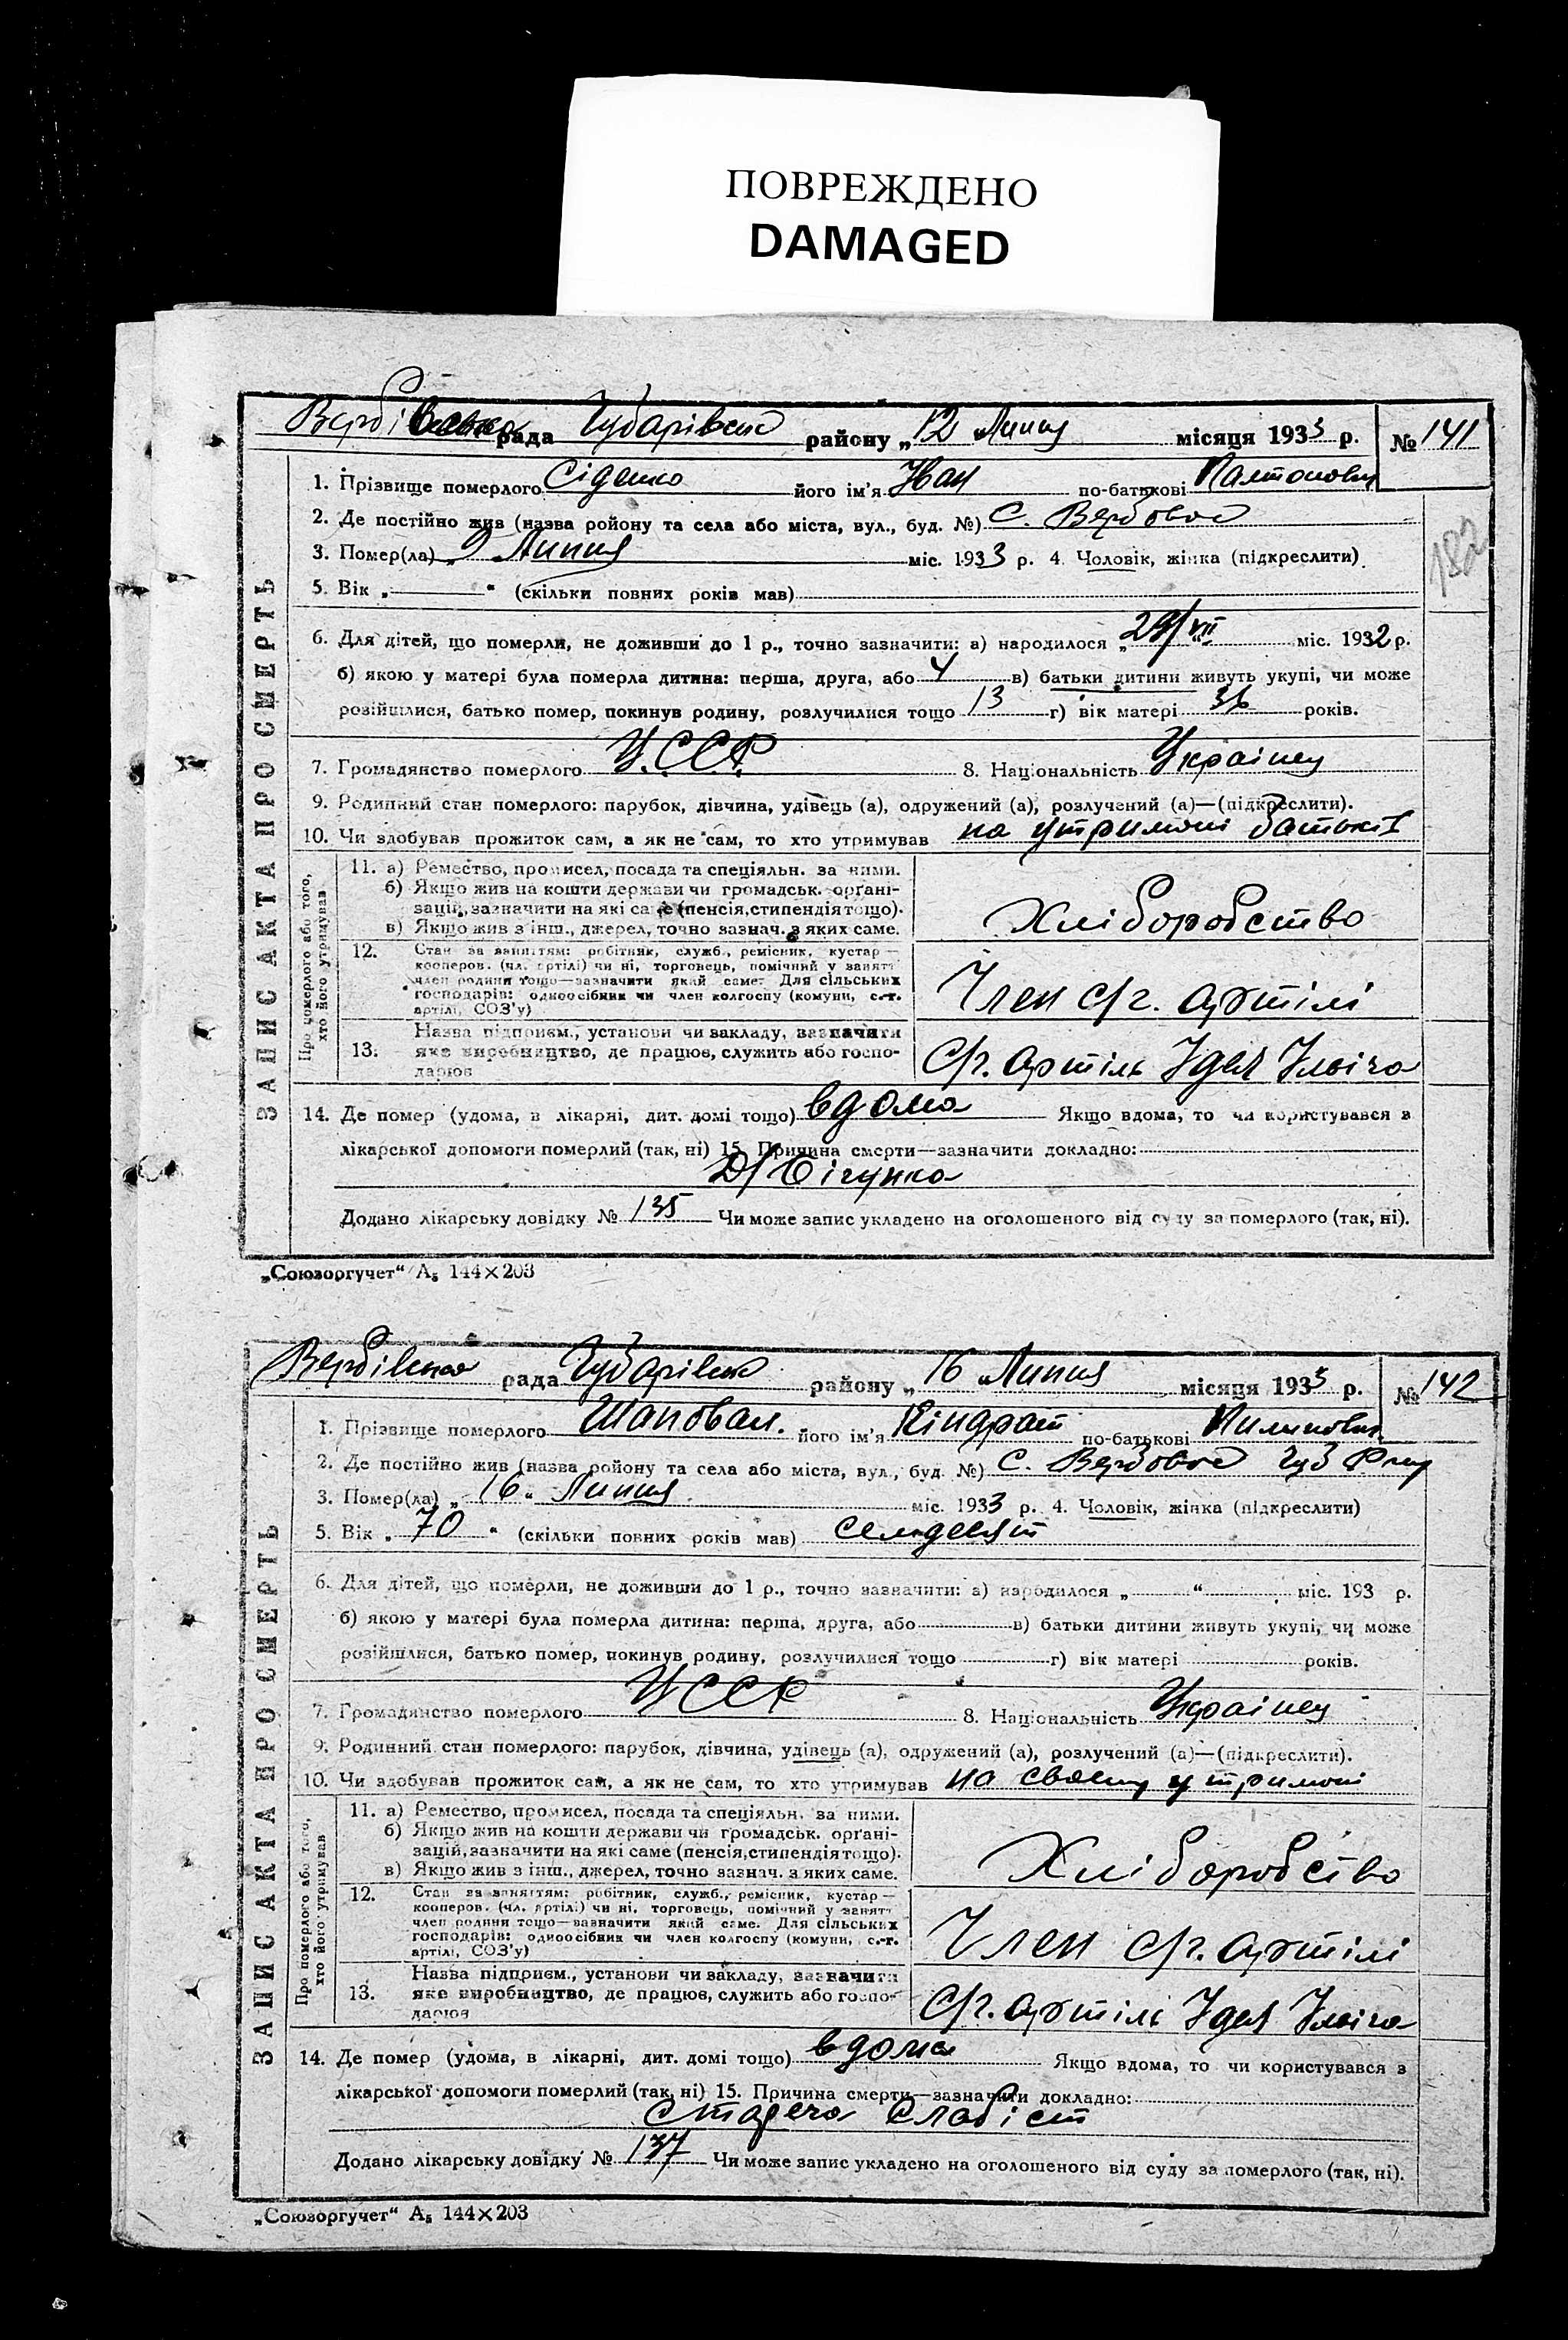 ПОВРЕЖДЕНО
DAMAGED
Вербівська рада Чубарівськ району „12 Липня місяця 1933 р. № 141
1. Прізвище померлого Сіденко його ім'я Іван по-батькові
2. Де постійно жив (назва ройону та села або міста, вул., буд. №) С. Вербовое
3. Помер(ла) „ 9 Липня міс. 1933 р. 4. Чоловік, жінка (підкреслити).
182
5. Вік „ “ (скільки повних років мав)
6. Для дітей, що померли, не доживши до 1 р., точно зазначити: а) народилося „29/VII міс. 1932 р.
б) якою у матері була померла дитина: перша, друга, або 4 в) батьки дитини живуть укупі, чи може
розійшлися, батько помер, покинув родину, розлучилися тощо 13 г) вік матері 36 років.
7. Громадянство померлого У.С.С.Р. 8. Національність Украінец
9. Родинний стан померлого: парубок, дівчина, удівець (а), одружений (а), розлучений (а)—(підкреслити).
10. Чи здобував прожиток сам, а як не сам, то хто утримував на утримані батьків
ЗАПИС АКТА ПРО СМЕРТЬ
Про померлого або того, хто його утримував
11. а) Ремество, промисел, посада та спеціяльн. за ними.
б) Якщо жив на кошти держави чи громадськ. органі-
зацій, зазначити на які саме (пенсія, стипендія тощо).
в) Якщо жив з інш., джерел, точно зазнач. з яких саме.
Хліборобство
12. Стан за заняттям: робітник, служб., ремісник, кустар—
кооперов. (чл. артілі) чи ні, торговець, помічний у занятт
член родини тощо—зазначити який саме. Для сільських
господарів: одноосібник чи член колгоспу (комуни, с.-г.
артілі, СОЗ'у)
Член с/г. артілі
13. Назва підприєм., установи чи закладу, зазначити
яке виробництво, де працює, служить або госпо-
дарює
С/г. артіль Ідея Ільіча
14. Де помер (удома, в лікарні, дит. домі тощо) вдома Якщо вдома, то чи користувався з
лікарської допомоги померлий (так, ні) 15. Причина смерти—зазначити докладно:
Додано лікарську довідку № 135 Чи може запис укладено на оголошеного від суду за померлого (так, ні).
„Союзоргучет“ А₅ 144×203
Вербівська рада Чубарівськ району „ 16 Липня місяця 1933 р. № 142
1. Прізвище померлого Шаповал. його ім'я Кіндрат по-батькові
2. Де постійно жив (назва ройону та села або міста, вул., буд. №) С. Вербовое Чуб
3. Помер(ла) „ 16 “ Липня міс. 1933 р. 4. Чоловік, жінка (підкреслити)
5. Вік „ 70 “ (скільки повних років мав) семдесят
6. Для дітей, що померли, не доживши до 1 р., точно зазначити: а) народилося „ “ міс. 193 р.
б) якою у матері була померла дитина: перша, друга, або в) батьки дитини живуть укупі, чи може
розійшлися, батько помер, покинув родину, розлучилися тощо г) вік матері років.
7. Громадянство померлого УССР 8. Національність Украінец
9. Родинний стан померлого: парубок, дівчина, удівець (а), одружений (а), розлучений (а)—(підкреслити).
10. Чи здобував прожиток сам, а як не сам, то хто утримував на своему утримані
ЗАПИС АКТА ПРО СМЕРТЬ
Про померлого або того, хто його утримував
11. а) Ремество, промисел, посада та спеціяльн. за ними.
б) Якщо жив на кошти держави чи громадськ. органі-
зацій, зазначити на які саме (пенсія, стипендія тощо).
в) Якщо жив з інш., джерел, точно зазнач. з яких саме.
Хліборобство
12. Стан за заняттям: робітник, служб., ремісник, кустар—
кооперов. (чл. артілі) чи ні, торговець, помічний у занятт
член родини тощо—зазначити який саме. Для сільських
господарів: одноосібник чи член колгоспу (комуни, с.-г.
артілі, СОЗ'у)
Член с/г. артілі
13. Назва підприєм., установи чи закладу, зазначити
яке виробництво, де працює, служить або госпо-
дарює
С/г. артіль Ідея Ільіча
14. Де помер (удома, в лікарні, дит. домі тощо) вдома Якщо вдома, то чи користувався з
лікарської допомоги померлий (так, ні) 15. Причина смерти—зазначити докладно:
Стареча слабіст
Додано лікарську довідку № 137 Чи може запис укладено на оголошеного від суду за померлого (так, ні).
„Союзоргучет“ А₅ 144×203